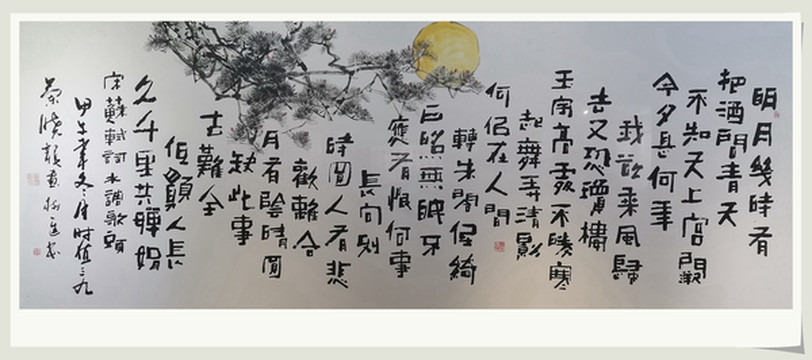 明月幾時有
把酒問青天
不知天上宮闕
今夕是何年
我欲乘風歸
去又恐瓊樓
玉宇高處不勝寒
起舞弄清影
何似在人間
轉朱閣低綺
戶照無眠不
應有恨何事
長向別
時圓人有悲
歡離合
月有陰晴圓
缺此事
古難全
但願人長
久千里共嬋娟
宋蘇軾詞水調歌頭
甲午年冬月時值三九